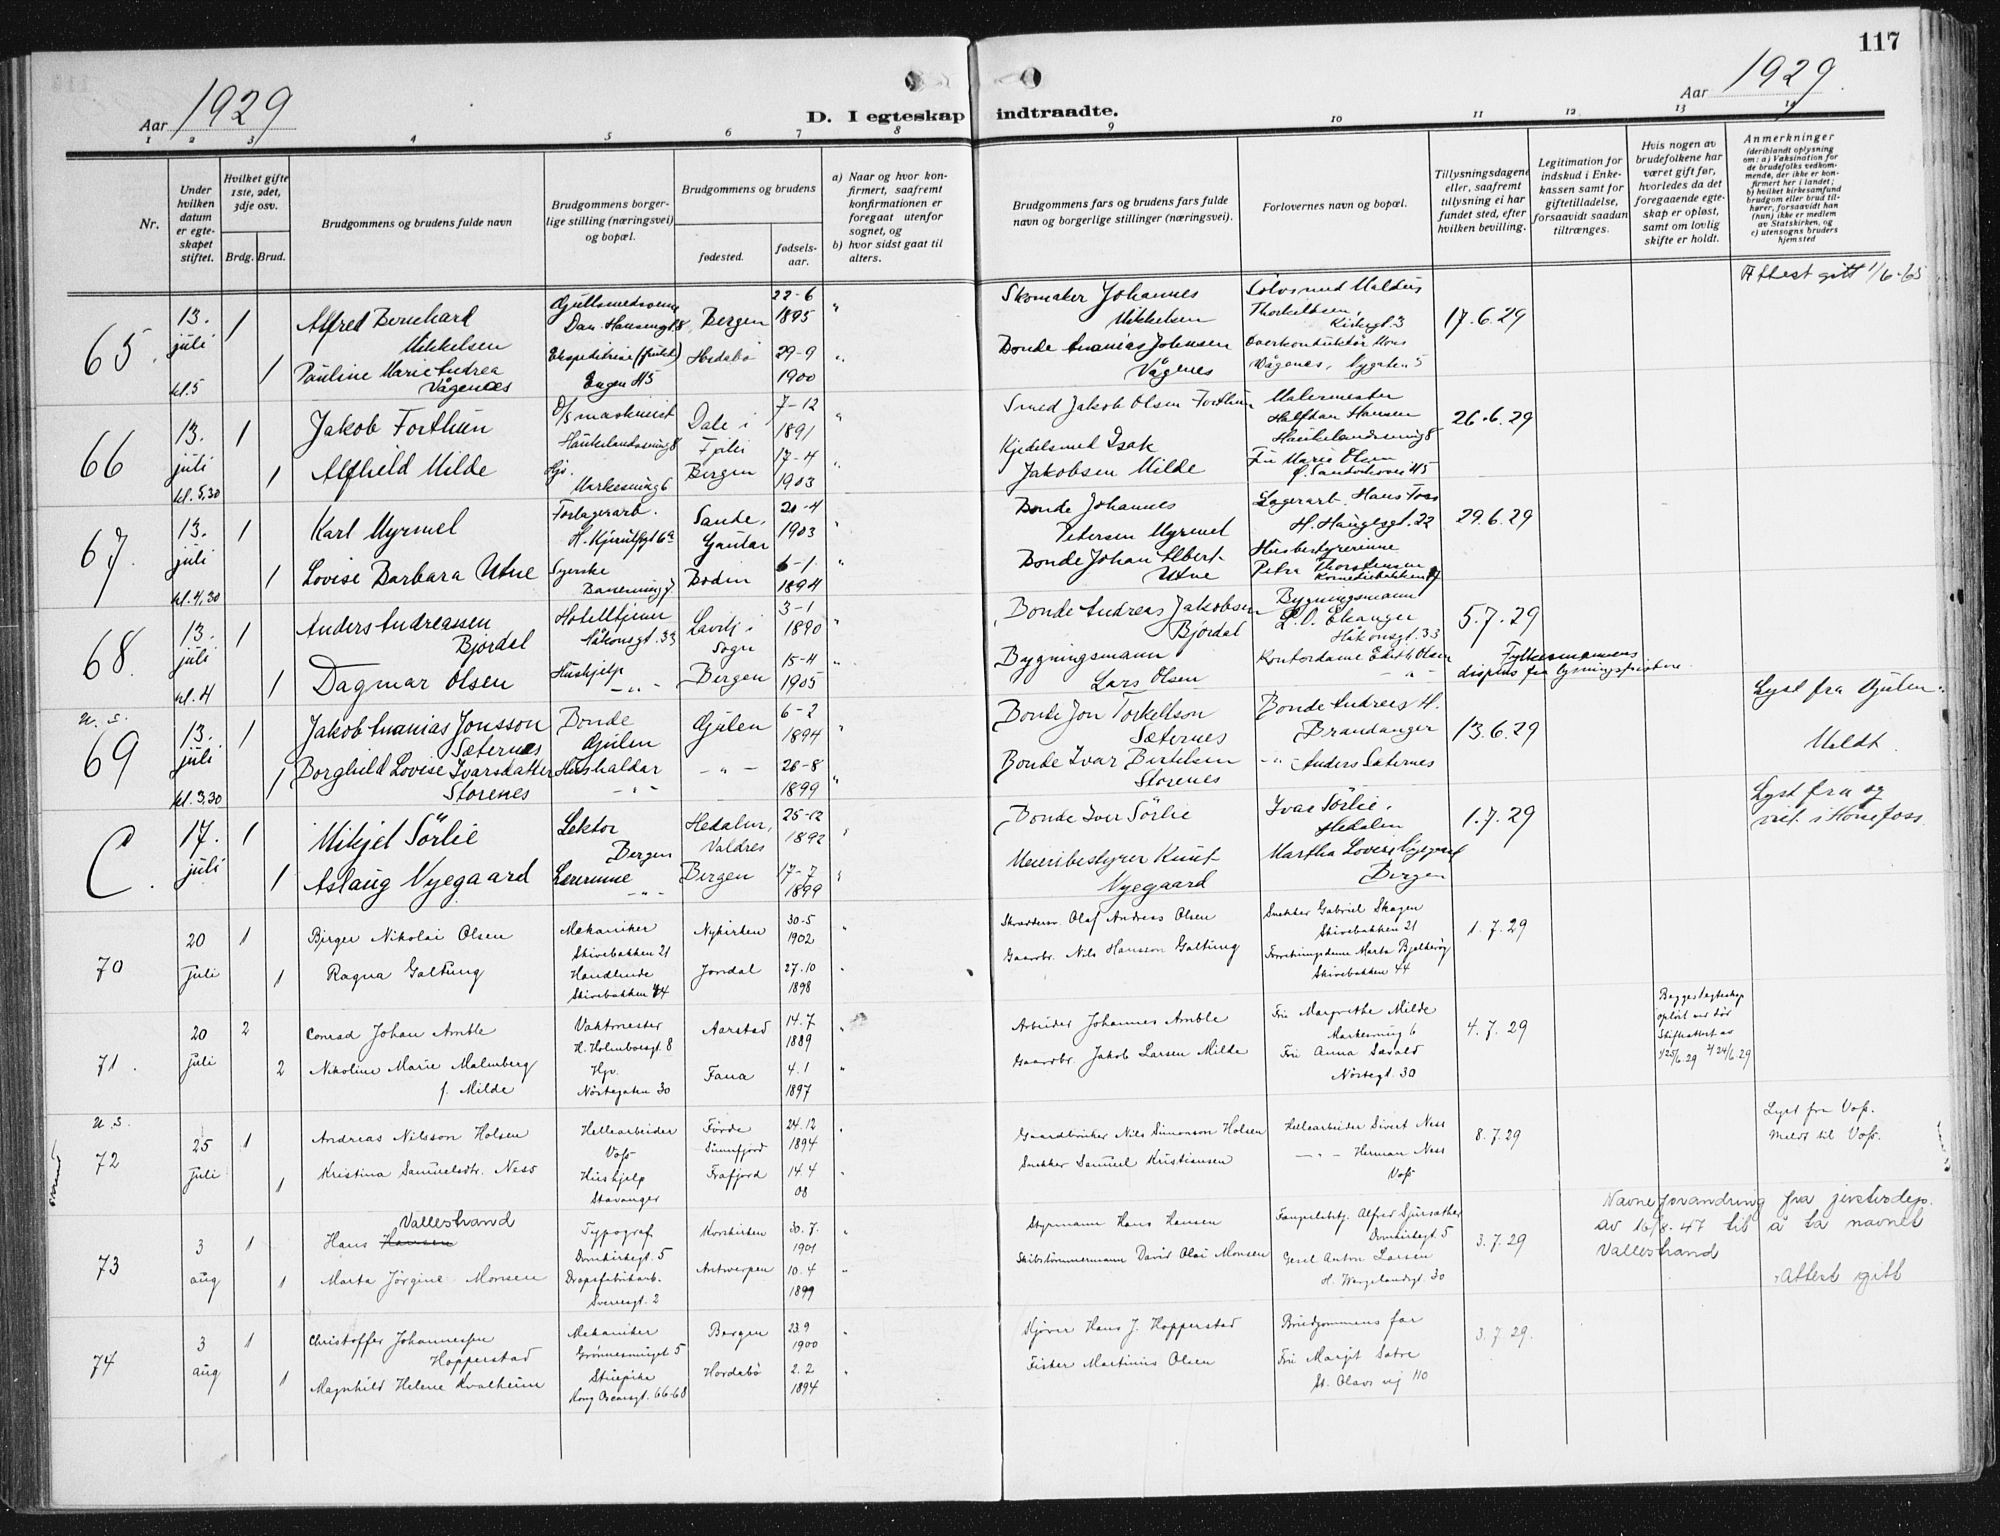 117
Aar 1929
D. I egteskap indtraadte.
Aar 1929
1 2 3 4 5 6 7 8 9 10 11 12 13 14
Nr.
Under hvilken datum er egteskapet stiftet.
Hvilket gifte 1ste, 2det, 3dje osv.
Brdg. Brud.
Brudgommens og brudens fulde navn
Brudgommens borgerlige stilling (næringsvei) og bopæl.
Brudgommens og brudens
fødested.
fødselsaar.
a) Naar og hvor konfirmert, saafremt konfirmationen er foregaat utenfor sognet, og
b) hvor sidst gaat til alters.
Brudgommens fars og brudens fars fulde navn og borgerlige stillinger (næringsvei).
Forlovernes navn og bopæl.
Tillysningsdagene eller, saafremt tillysning ei har fundet sted, efter hvilken bevilling.
Legitimation for indskud i Enkekassen samt for giftetilladelse, forsaavidt saadan tiltrænges.
Hvis nogen av brudefolkene har været gift før, hvorledes da det foregaaende egteskap er opløst, samt om lovlig skifte er holdt.
Anmerkninger
(deriblandt oplysning om: a) Vaksination for de brudefolks vedkommende, der ikke er konfirmert her i landet; b) hvilket kirkesamfund brudgom eller brud tilhører, forsaavidt han (hun) ikke er medlem av Statskirken, og c) utensogns bruders hjemsted
65 13. juli kl. 5
1 Alfred Bernhard Mikkelsen
Bergen 22-6 1895 "
Skomaker Johannes Mikkelsen
17.6.29
Attest gitt 1/6-65
1 Pauline Marie Andrea Vågenes
Engen 45
29-9 1900 "
Bonde Ananias Johnsen Vågenes
66 13. juli kl. 5,30
1 Jakob Forthun
Dale i Fjaler 7-12 1891 "
Smed Jakob Olsen Forthun
Malermester Halfdan Hansen
26.6.29
1 Alfhild Milde
Bergen 17-4 1903 "
Kjedelsmed Isak Jakobsen Milde
67. 13. juli kl. 4,30
1 Karl Myrmel
Sande, Gaular 20-4 1903 "
Bonde Johannes Petersen Myrmel
Lagerarb. Hans Foss
H. Haugesgt. 22
29.6.29
1 Lovise Barbara Utne
Syerske
Bodin 6-1 1894 "
Bonde Johan Albert Utne
Husbestyrerinne Petra Thorstensen
68. 13. juli kl. 4
1 Anders Andreassen Bjordal
Håkonsgt. 33
Lavik i Sogn 3-1 1890 "
Bonde Andreas Jakobsen Bjordal
Bygningsmann
Håkonsgt. 33
5.7.29
1 Dagmar Olsen
Hushjelp - " -
Bergen 15-4 1905 "
Bygningsmann Lars Olsen
Kontordame Edith Olsen - " -
Fylkesmannens dispens fra lysningsfristene.
u. s.
69 13. juli kl. 3,30
1 Jakob Ananias Jonsson Sæternes
Bonde Gulen
Gulen 6-2 1894 "
Bonde Jon Torkellson Sæternes
Bonde Andreas H. Brandanger
13.6.29
Lyst fra Gulen.
Meldt.
1 Borghild Lovise Ivarsdatter Storenes
- " -
- " - 26-8 1899 "
Bonde Ivar Bertelsen Storenes
- " - Anders Sæternes
C. 17. juli
1 Mikjel Sörlie
Lektor Bergen
Hedalen, Valdres 25-12 1892 "
Bonde Iver Sörlie
Ivar Sörlie, Hedalen
1.7.29
Lyst fra og viet i Hønefoss.
1 Aslaug Nyegaard
Lærerinne - " -
Bergen 17-7 1899 "
Meieribestyrer Knut Nyegaard
Bergen
70 20 juli
1 Birger Nikolai Olsen
Mekaniker Skivebakken 21
Nykirken 30-5 1902 "
Olaf Andreas Olsen
Snekker Gabriel Skagen Skivebakken 21
1.7.29
1 Ragna Galtung
Handlende Skivebakken 44
Jondal 27.10 1898 "
Gaardbr. Nils Hansson Galtung
Skivebakken 44
71. 20 juli
2 Conrad Johan Amble
Vaktmester H. Holmboesgt. 8
Aarstad 14.7 1889 "
Arbeider Johannes Amble
Fru Margrethe Milde
4.7.29
Begges egteskap opløst ved død
Skifteattest av
2 Nikoline Marie Malmberg f. Milde
Hjv. Nöstegaten 30
Fana 4.1 1897 "
Gaardbr. Jakob Larsen Milde
Fru Anna
Nöstegt. 30
u. s.
72 25 juli
1 Andreas Nilsson Holsen
Hellearbeider Voss
Förde Sunnfjord 24.12 1894 "
Gaardbruker Nils Simonson Holsen
Hellearbeider Sivert Ness
8.7.29
Lyst fra Voss.
Meldt til Voss.
1 Kristina Samuelsdtr. Ness
Hushjelp Stavanger
Frafjord 14.4 08 "
Snekker Samuel Kristiansen
- " - Herman Ness Voss
73 3 aug
1 Hans Hansen Vallestrand
Typograf Domkirkegt. 5
Korskirken 30.7. 1901 "
Styrmann Hans Hansen
Domkirkegt 5
3.7.29
Navneforandring fra justisdep. av 16/8-47 til å ta navnet Vallestrand
1 Marta Jörgine Monsen
Dropsfabrikarb. Sverresgt. 2
Antwerpen 10.4 1899 "
Skibstömmermann David Olai Monsen
Anton Larsen
H. Wergelandsgt. 30
Attest gitt
74 3 aug
1 Christoffer Johannessen Hopperstad
Mekaniker
Bergen 23.9 1900 "
Kjører Hans J. Hopperstad
Brudgommens far
3.7.29.
1 Magnhild Helene Kvalheim
Stuepike Kong Oscarsgt. 66-68
Hordabö 2.2 1894 "
Fisker Martinus Olsen
Fru Margit Sætre
St. Olavs vej 110